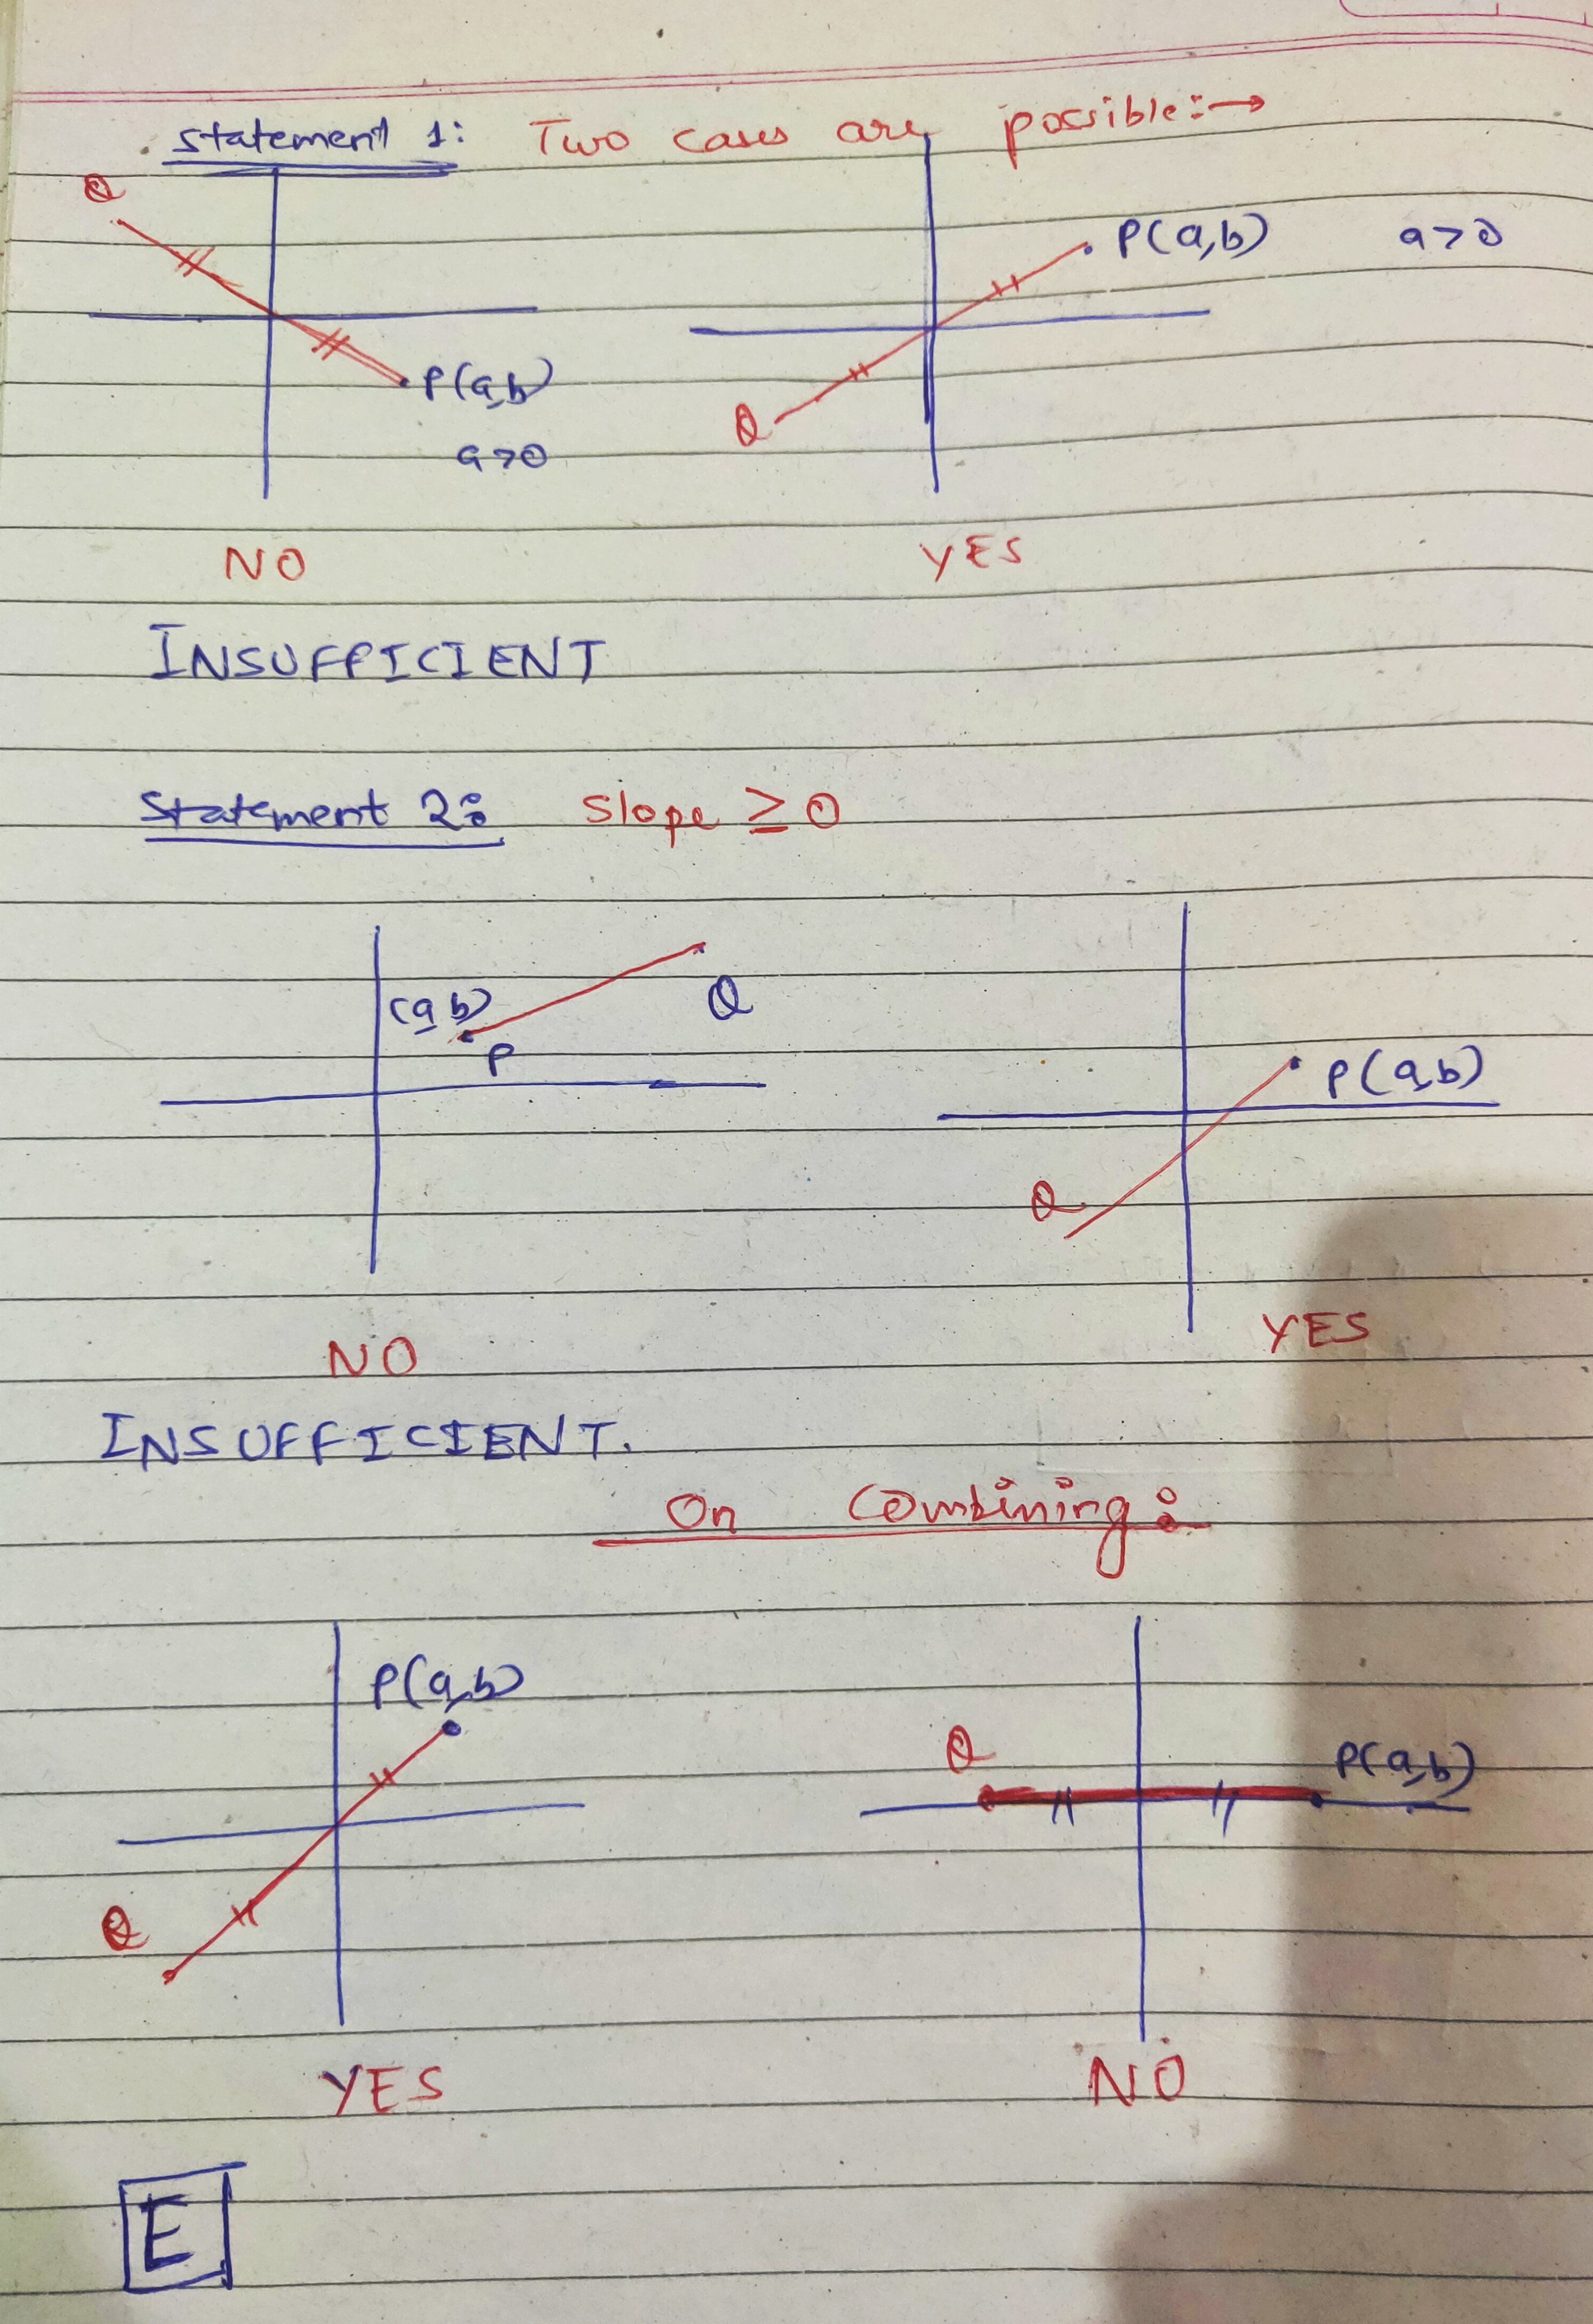 Statement 1: Two cases are possible:→
Q
P(a,b) a>0
P(a,b)
Q
a>0
NO YES
INSUFFICIENT
Statement 2: Slope ≥ 0
(a,b) Q
P
P(a,b)
Q
YES
NO
INSUFFICIENT.
On Combining:
P(a,b)
Q P(a,b)
Q
YES NO
E